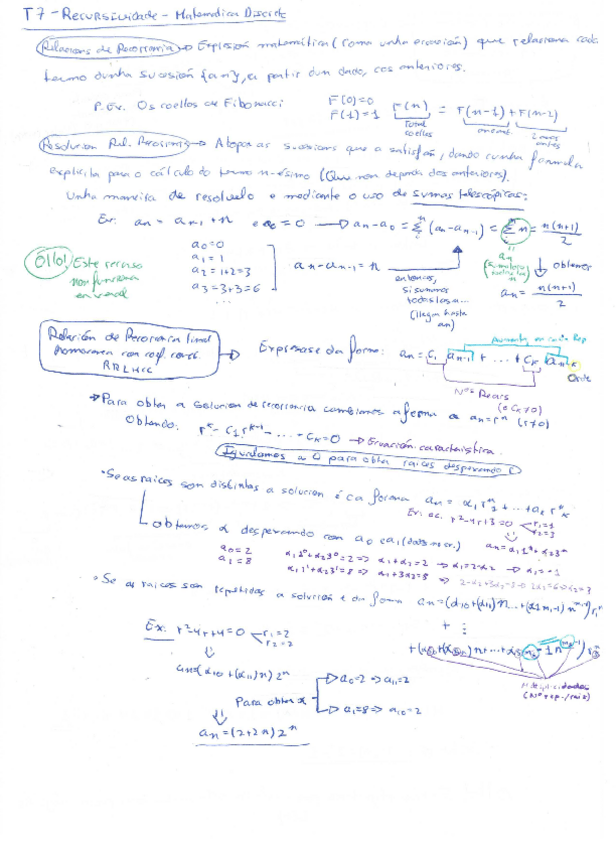 T7 - Recursividade - Matemática Discreta
Relacións de Recorrencia → Expresión matemática (como unha ecuación) que relaciona cada
termo dunha sucesión {an}, a partir dun dado, cos anteriores.
P. Ex. Os coellos de Fibonacci F(0)=0 F(1)=1 F(n) = F(n-1) + F(n-2)
Total coellos 2 anos antes
Resolución Rel. Recorrencia → Atopar as sucesións que a satisfán, dando cunha formula
explícita para o cálculo do termo n-ésimo (Que non dependa dos anteriores).
Unha maneira de resolvelo e mediante o uso de sumas telescópicas:
Ex: an = an-1 + n e a0 = 0 → an - a0 = Σ (an - an-1) = Σ n = n(n+1)/2
Ollo! Este recurso non funciona en xeral
a0 = 0
a1 = 1
a2 = 1+2 = 3
a3 = 3+3 = 6
...
an - an-1 = n
entonces, si sumamos todos los a... (llegan hasta an)
obtemos
an = n(n+1)/2
Relación de Recorrencia lineal homoxenea con coef. const.
RRLHCC
Expresase da forma: an = C1 an-1 + ... + Ck an-k
Aumenta en cada Rep
Orde
Nos Reais
(Ck≠0)
→ Para obter a solución de recorrencia cambiamos a forma a an = r^n (r≠0)
Obtendo: r^k - C1 r^k-1 - ... - Ck = 0 → Ecuación característica
Igualamos a 0 para obter raíces despexando r
• Se as raices son distintas a solución é da forma an = α1 r1^n + ... + αk r^n k
Ex: ec. r²-4r+3=0 r1=1 r2=3
an = α1 1^n + α2 3^n
obtemos α despexando con a0 e a1 (dados no ex.)
a0 = 2 α1 1^0 + α2 3^0 = 2 ⇒ α1 + α2 = 2 → α1 = 2-α2 → α1 = -1
a1 = 8 α1 1^1 + α2 3^1 = 8 ⇒ α1 + 3α2 = 8
• Se as raices son repetidas a solución e da forma an = (α10 + (α11) n ... + (α1m1-1) n^m1-1) r1^n
+ ⋮
Ex: r²-4r+4=0 r1=2 r2=2
an = (α10 + (α11) n) 2^n
Para obter α
a0=2 ⇒ α11=2
a1=8 ⇒ α10=2
an = (2+2n) 2^n